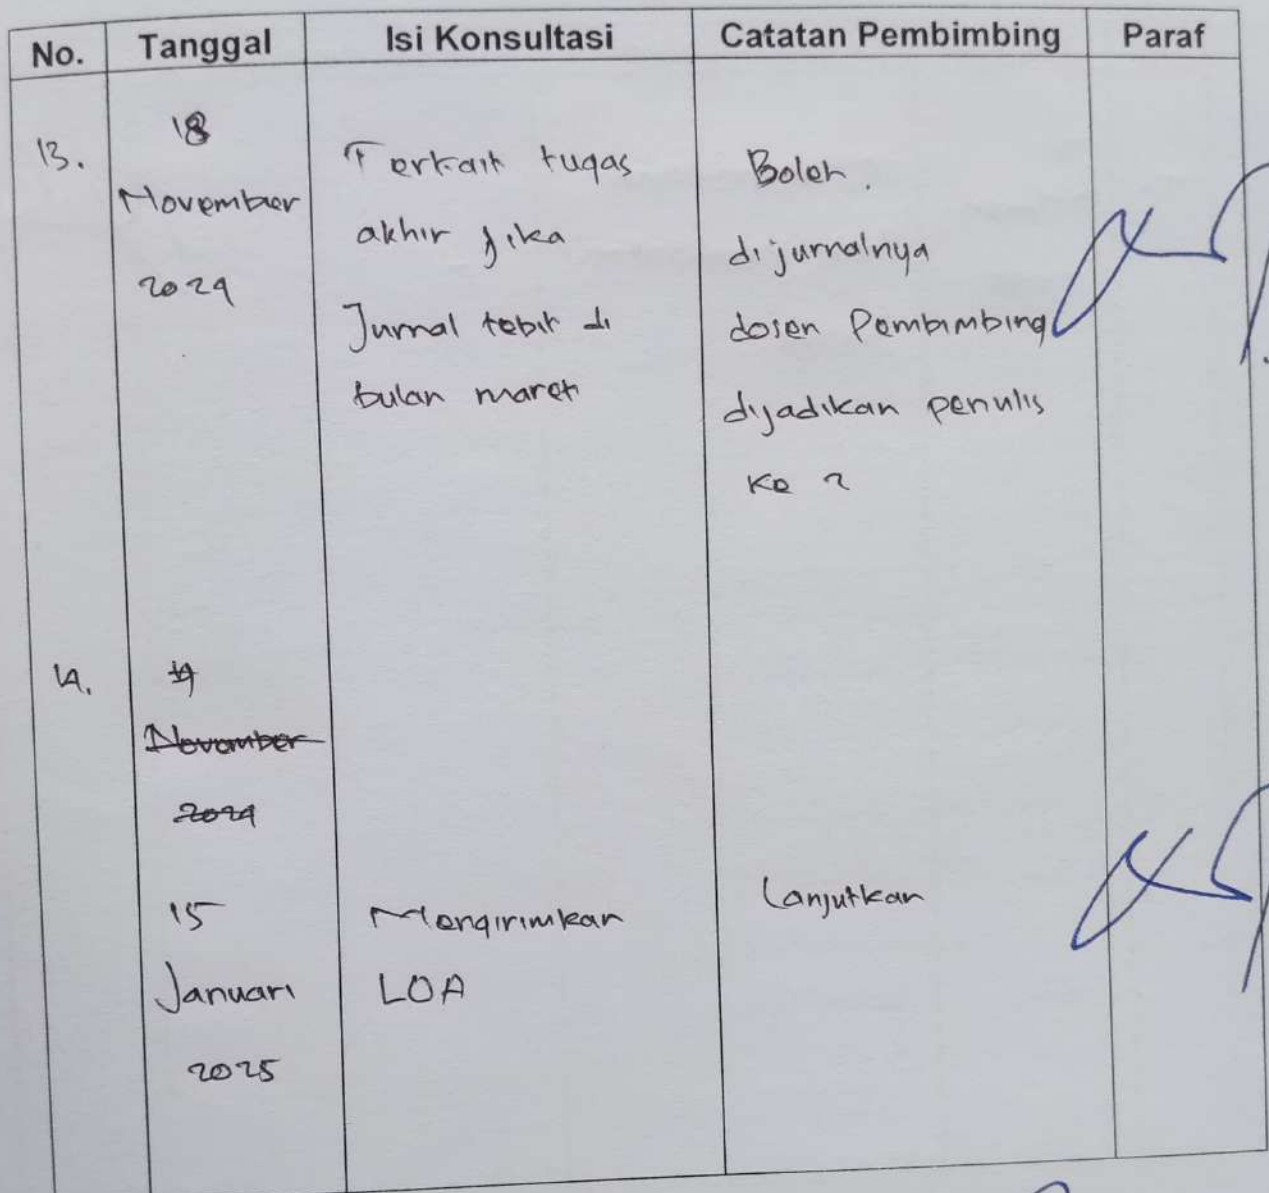 No. Tanggal Isi Konsultasi Catatan Pembimbing Paraf
13.
18
November
2024
Terkait tugas
akhir jika
Jurnal tebit di
bulan maret
Boleh.
dijurnalnya
dosen Pembimbing
dijadikan penulis
Ke 2
14.
19
November
2024
15
Januari
2025
Mengirimkan
LOA
Lanjutkan